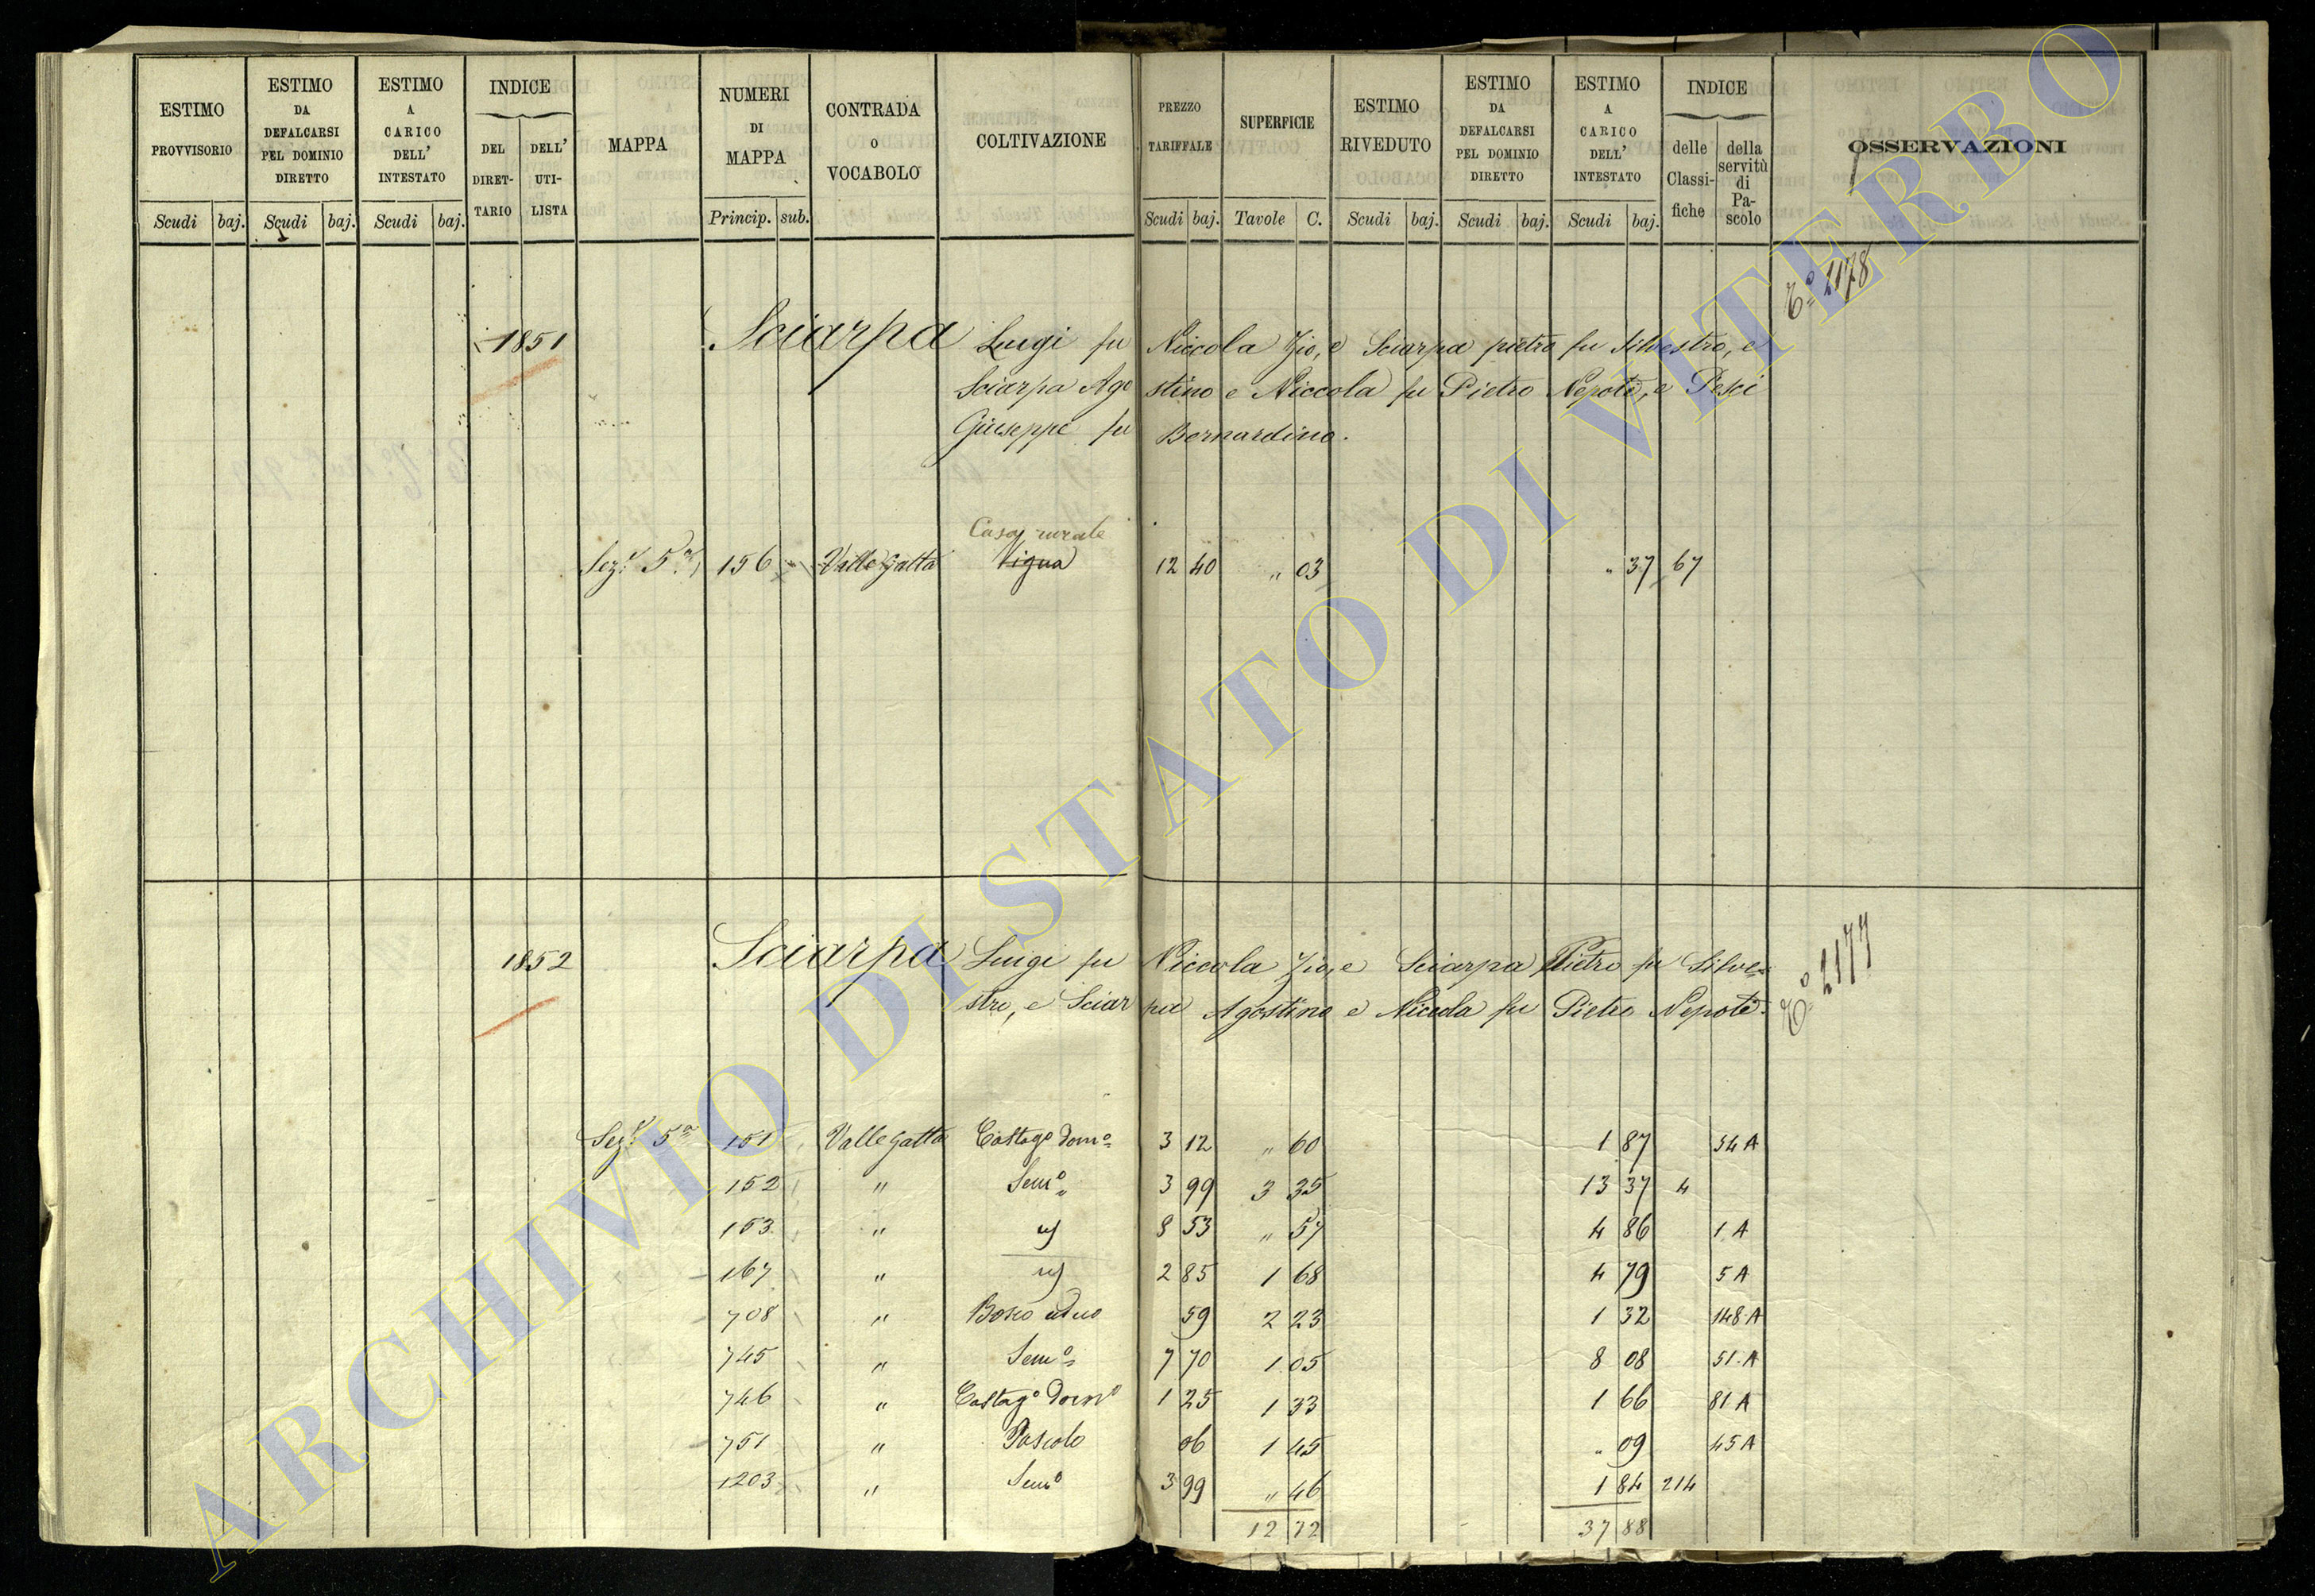 ESTIMO PROVVISORIO
ESTIMO DA DEFALCARSI PEL DOMINIO DIRETTO
ESTIMO A CARICO DELL' INTESTATO
INDICE
DEL DIRET-TARIO
DELL' UTI-LISTA
MAPPA
NUMERI DI MAPPA
CONTRADA O VOCABOLO
COLTIVAZIONE
PREZZO TARIFFALE
SUPERFICIE
ESTIMO RIVEDUTO
ESTIMO DA DEFALCARSI PEL DOMINIO DIRETTO
ESTIMO A CARICO DELL' INTESTATO
INDICE
delle Classi-fiche
della servitù di Pa-scolo
OSSERVAZIONI
Scudi baj. Scudi baj. Scudi baj. Princip. sub. Scudi baj. Tavole C. Scudi baj. Scudi baj. Scudi baj.
2178
1851 Sciarpa Luigi fu Niccola Zio, e Sciarpa pietro fu Silvestro, e
Sciarpa Agostino e Niccola fu Pietro Nepoti, e Pesci
Giuseppe fu Bernardino.
Casa rurale
Sez.e 5a 156 Valle gatta Vigna 12 40 " 03 " 37 67
2177
1852 Sciarpa Luigi fu Niccola Zio, e Sciarpa Pietro fu Silve=
stro, e Sciarpa Agostino e Nicola fu Pietro Nepoti.
Sez.e 5a 151 Valle gatta Castago domo 3 12 " 60 1 87 54 A
152 " Semo 3 99 3 35 13 37 4
153 " 8 53 " 57 4 86 1 A
167 " 2 85 1 68 4 79 5 A
708 " Bosco ceduo 59 2 23 1 32 148 A
745 " Semo 7 70 1 05 8 08 51 A
746 " Castago Domo 1 25 1 33 1 66 81 A
751 " Pascolo 06 1 45 " 09 45 A
1203 " Semo 3 99 " 46 1 84 214
12 72 37 88
ARCHIVIO DI STATO DI VITERBO